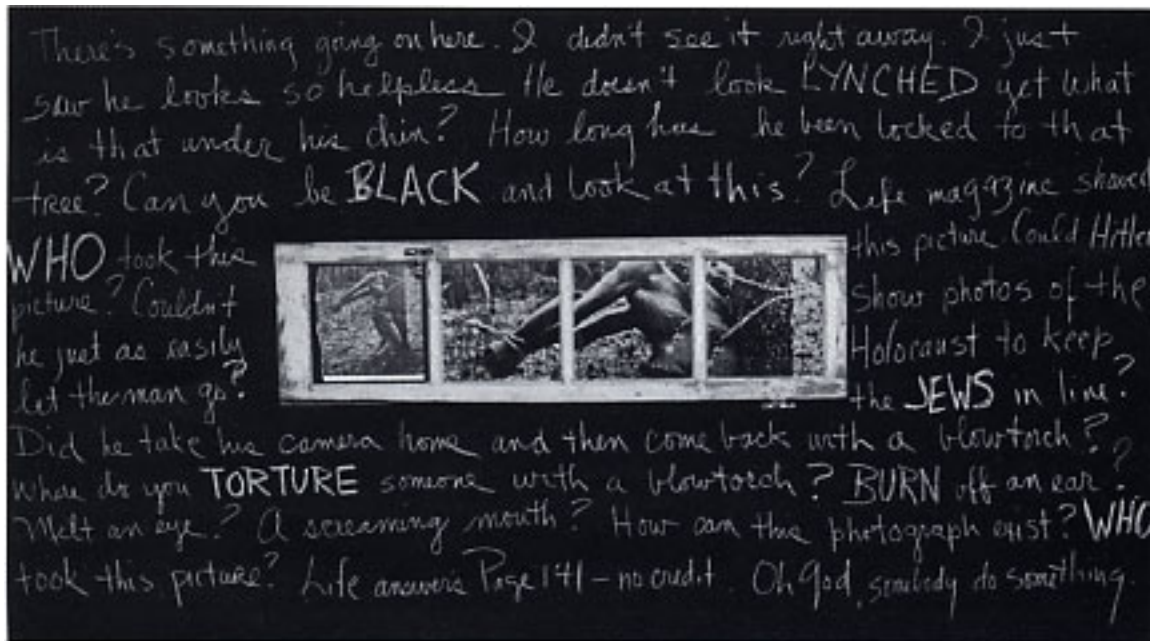 There's something going on here. I didn't see it right away. I just
saw he looks so helpless He doesn't look LYNCHED yet What
is that under his chin? How long has he been locked to that
tree? Can you be BLACK and look at this? Life magazine showed
WHO took this
picture? Couldn't
he just as easily
let the man go?
this picture. Could Hitler
show photos of the
Holocaust to keep
the JEWS in line?
Did he take his camera home and then come back with a blowtorch?
Where do you TORTURE someone with a blowtorch? BURN off an ear?
Melt an eye? A screaming mouth? How can this photograph exist? WHO
took this picture? Life answers Page 141 – no credit. Oh god, somebody do something.